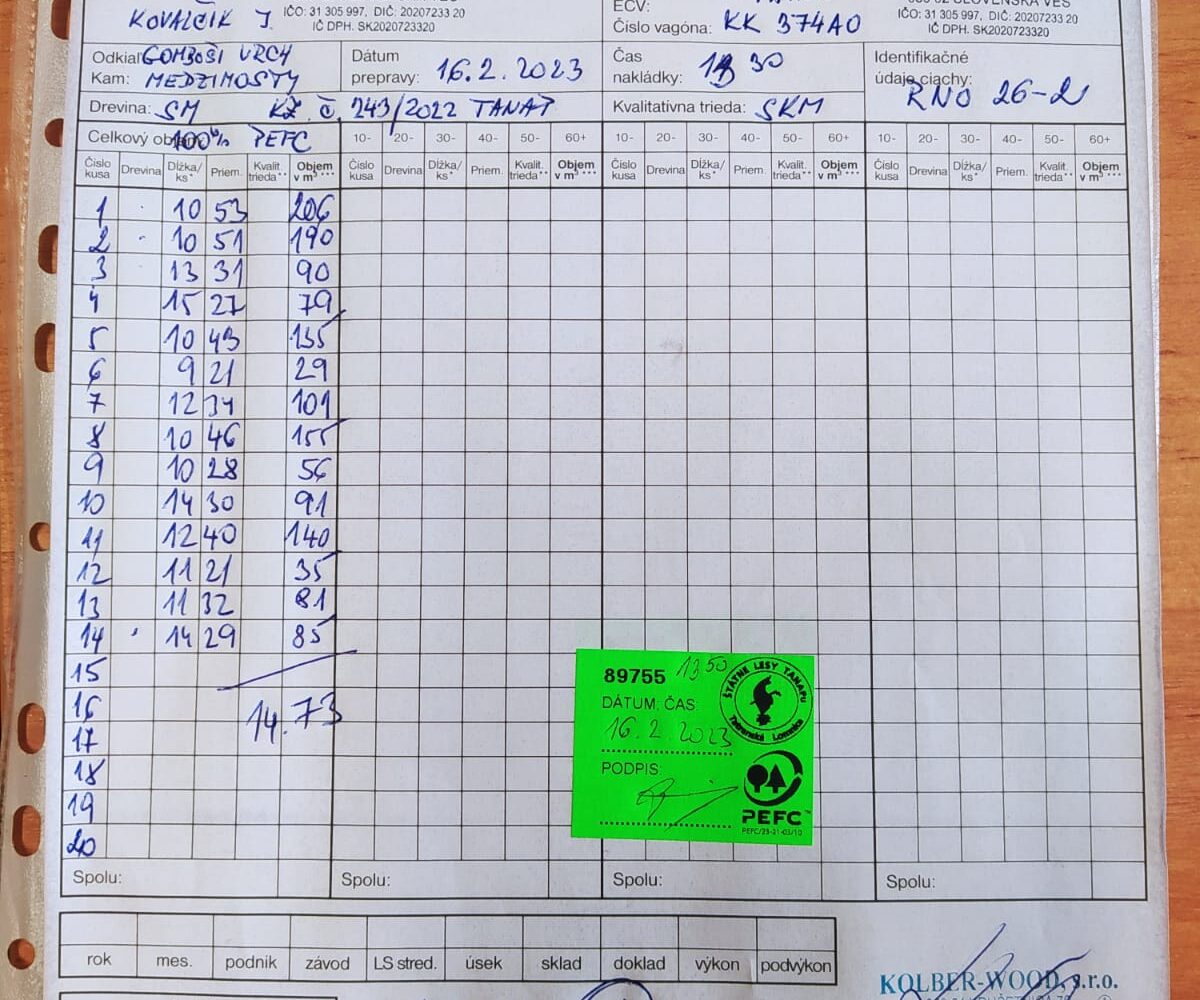 KOVALČIK J. IČO: 31 305 997, DIČ: 20207233 20
IČ DPH. SK2020723320
EČV:
Číslo vagóna: KK 374AO
IČO: 31 305 997, DIČ: 20207233 20
IČ DPH. SK2020723320
Odkiaľ GOMBOŠI VRCH
Kam: MEDZIMOSTY
Dátum
prepravy: 16.2.2023
Čas
nakládky: 13 30
Identifikačné
údaje ciachy:
RNO 26-2
Drevina: SM KZ. č. 243/2022 TANAP
Kvalitatívna trieda: SKM
100% PEFC
10- 20- 30- 40- 50- 60+ 10- 20- 30- 40- 50- 60+ 10- 20- 30- 40- 50- 60+
Číslo kusa Drevina Dĺžka/ks* Priem. Kvalit. trieda** Objem v m³*** Číslo kusa Drevina Dĺžka/ks* Priem. Kvalit. trieda** Objem v m³*** Číslo kusa Drevina Dĺžka/ks* Priem. Kvalit. trieda** Objem v m³*** Číslo kusa Drevina Dĺžka/ks* Priem. Kvalit. trieda** Objem v m³***
1 10 53 206
2 10 51 190
3 13 31 90
4 15 27 79
5 10 43 135
6 9 21 29
7 12 34 101
8 10 46 155
9 10 28 56
10 14 30 91
11 12 40 140
12 11 21 35
13 11 32 81
14 14 29 85
15
16
14.73
17
18
19
20
89755 13 50
DÁTUM, ČAS:
16.2.2023
PODPIS:
ŠTÁTNE LESY TANAPU
Tatranská Lomnica
PEFC™
PEFC/23-21-03/10
Spolu: Spolu: Spolu: Spolu:
rok mes. podnik závod LS stred. úsek sklad doklad výkon podvýkon
KOLBER-WOOD, s.r.o.